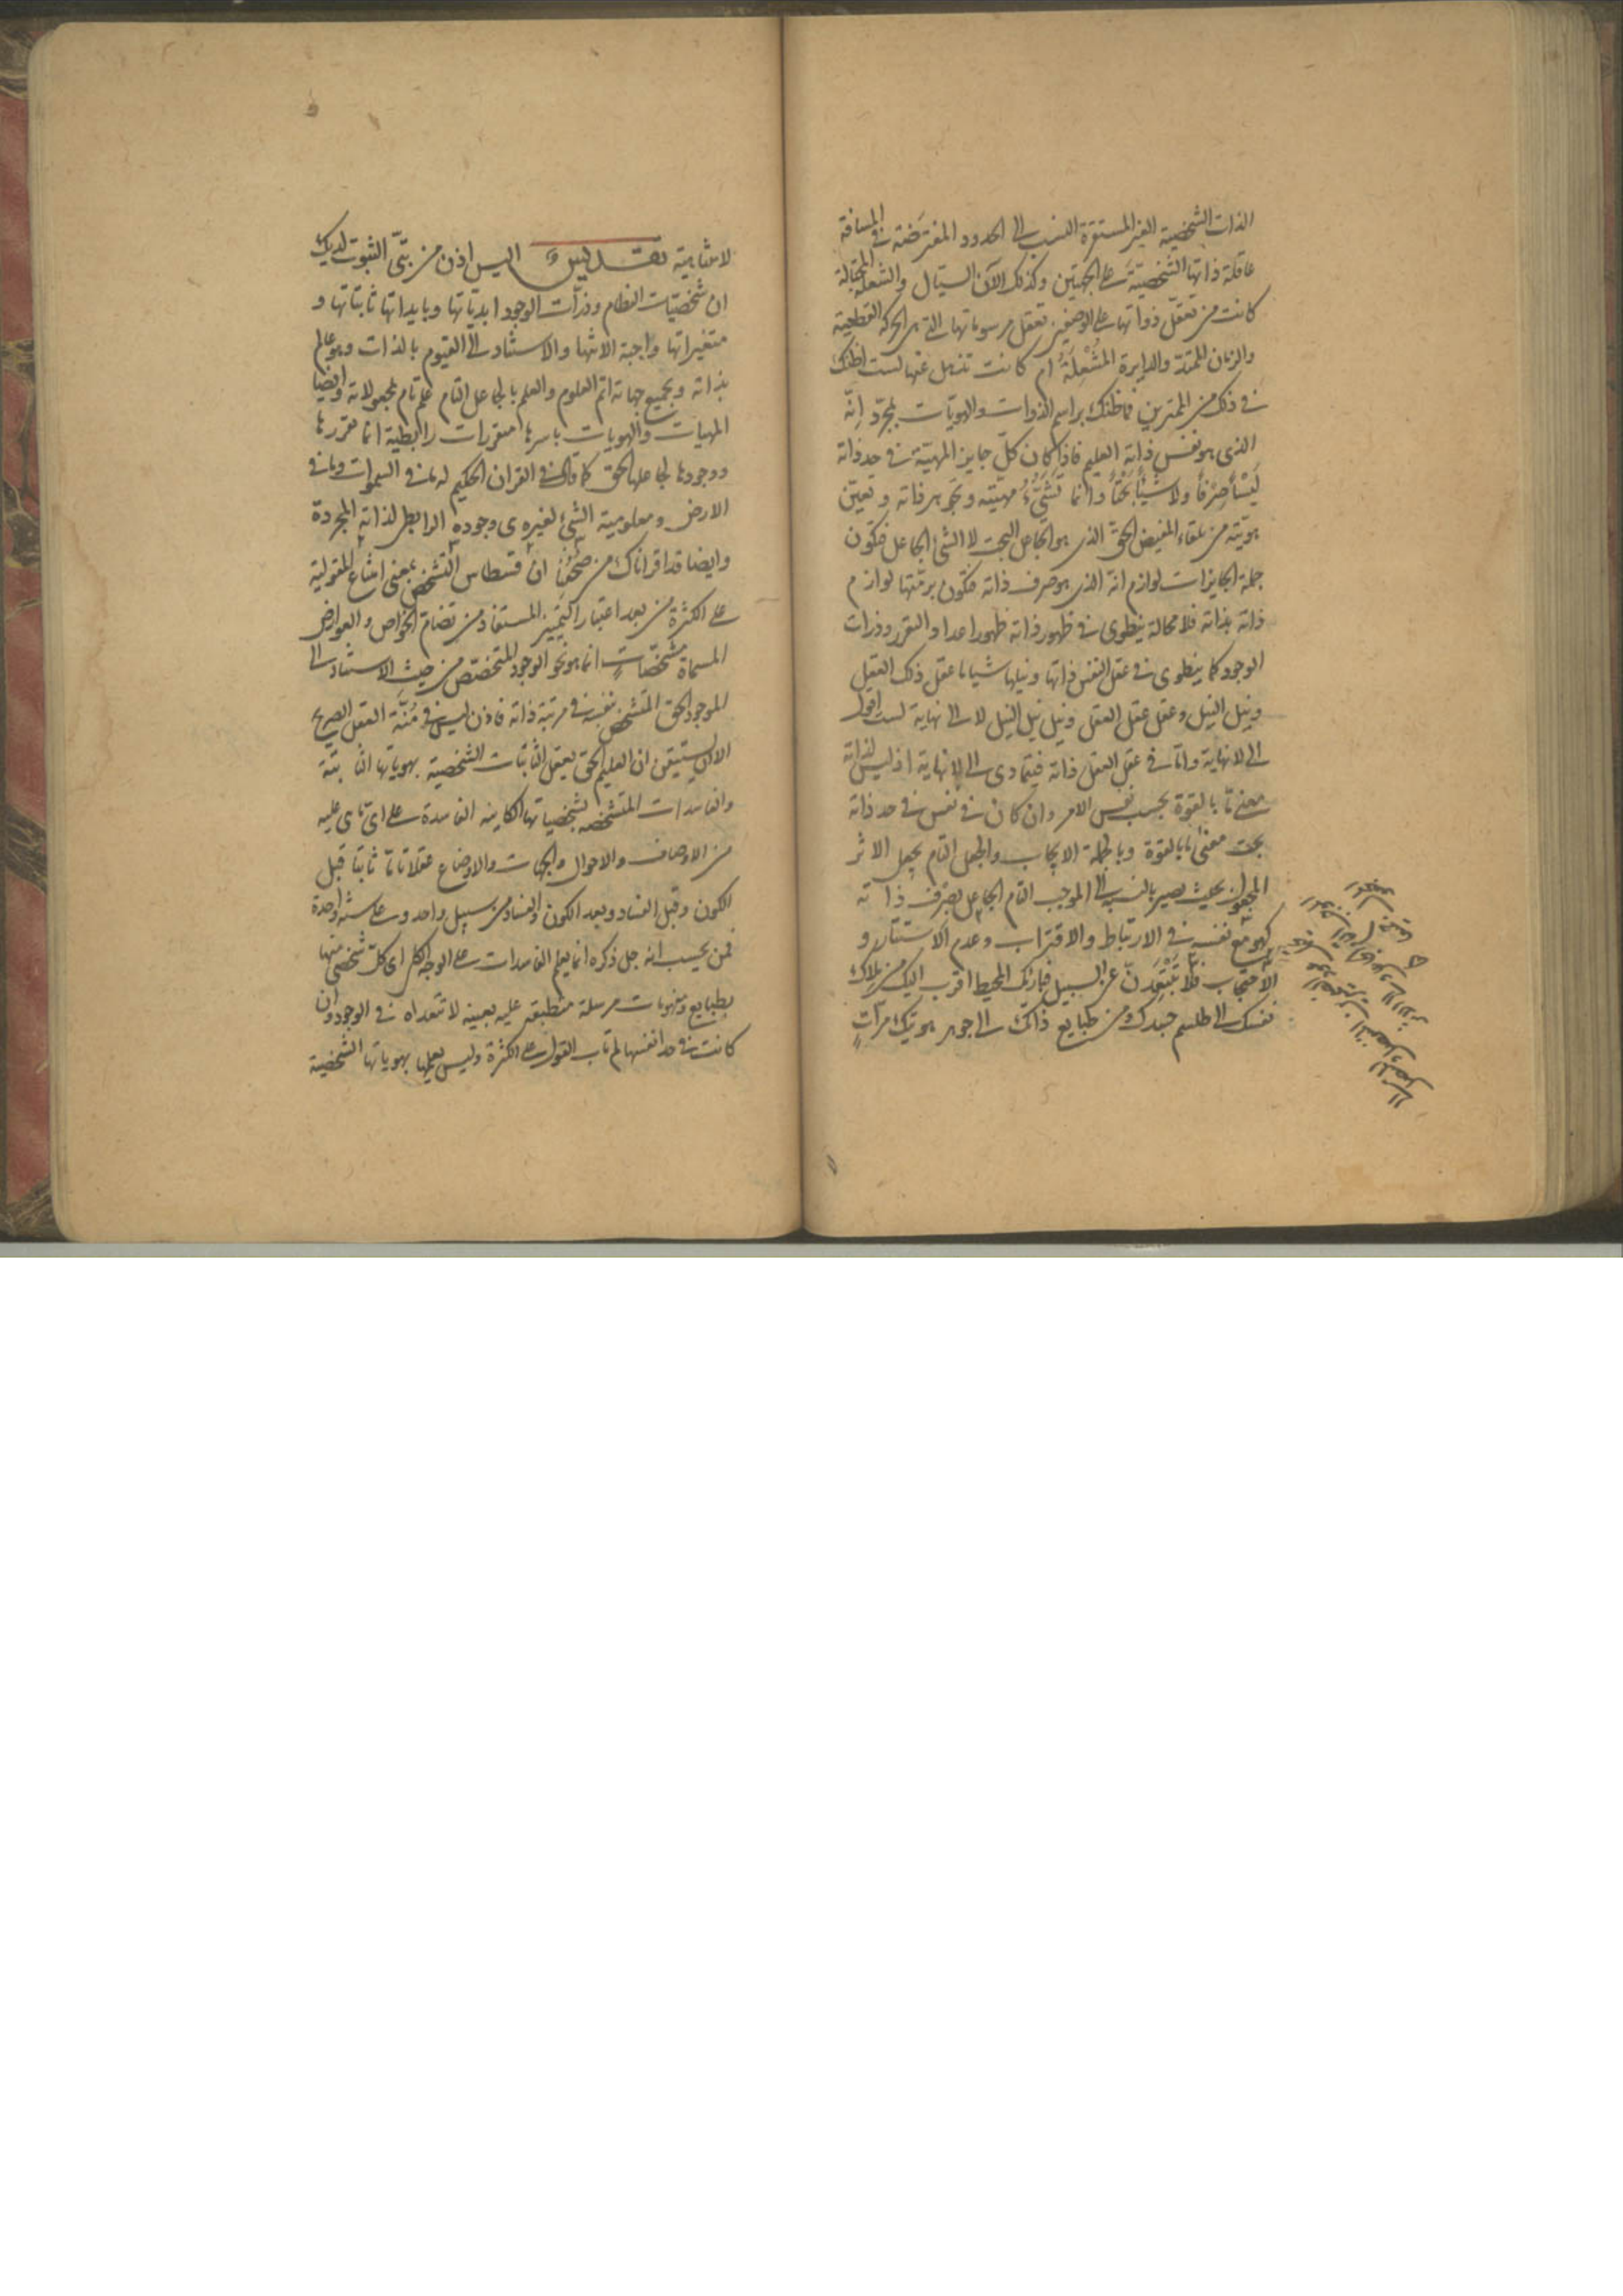 الذات الشخصية الغير المستقرة النسب الى الحدود المفترضة في المسافة
عاقلة ذاتها الشخصية على الجهتين وكذلك الآن السيال والشعلة الجوالة
كانت من تعقل ذواتها على الوصفين تعقل مرسوماتها التي هي الحركة القطعية
والزمان الممتد والدايرة المشعلة ام كانت تذهل عنها لست اظنك
في ذلك من الممترين فما ظنك براسم الذوات والهويات بمجرد انه
الذى هو نفس ذاته العليم فاذا كان كل جايز المهية في حد ذاته
ليسا صرفا ولا شيئا بحتا وانما تشيؤ مهيته وتجوهر ذاته وتعين
هويته من تلقاء المفيض الحق الذى هو الجاعل البحت لا الشئ الجاعل فتكون
جملة الجايزات لوازم انه الذى هو صرف ذاته فتكون برمتها لوازم
ذاته بذاته فلا محالة ينطوى في ظهور ذاته ظهور اعداد التقرر وذرات
الوجود كما ينطوى في عقل النفس ذاتها ونيلها شيئا ما عقل ذلك العقل
ونيل النيل وعقل عقل العقل ونيل نيل النيل لا الى نهاية لست اقول
الى لانهاية واما في عقل العقل ذاته فيتمادى الى لانهاية اذ ليس لذاته
معنى ما بالقوة بحسب نفس الامر وان كان في نفس في حد ذاته
بحت معنى ما بالقوة وبالجملة الايجاب والجعل التام يجعل الاثر
المجعول بحيث يصير بالنسبة الى الموجب التام الجاعل بصرف ذاته
كهو مع نفسه في الارتباط والاقتراب وعدم الاستتار و
الاحتجاب فلا تبتعدن عن السبيل فبارئك المحيط اقرب اليك من ملاك
نفسك الى طلسم جسدك ومن طبايع ذاتك الى جوهر هويتك مرات
لا متناهية تقديس اليس اذن من بتي الثبوت لديك
ان شخصيات النظام وذرات الوجود ابدياتها وبايداتها ثابتاتها و
متغيراتها واجبة الانتهاء والاستناد الى القيوم بالذات وهو عالم
بذاته وبجميع جهاته اتم العلوم والعلم بالجاعل التام علم تام بمجعولاته وايضا
المهيات والهويات باسرها متقررات رابطية انما تقررها
ووجودها لجاعلها الحق كما قال في القران الحكيم له ما في السموات وما في
الارض ومعلومية الشئ لغيره هى وجوده الرابطى لذاته المجردة
وايضا قد اقراناك من صحفنا ان قسطاس التشخص بمعنى امتناع المقولية
على الكثرة من بعد اعتبار التميز المستفاد من تضام الخواص والعوارض
المسماة مشخصات انما هو نحو الوجود المتخصص من حيث الاستناد الى
الموجود الحق المتشخص بنفسه في مرتبة ذاته فاذن ليس في منة العقل الصريح
الا ان يستيقن ان العليم الحق يعقل الثابتات الشخصية بهوياتها الثابتة
والفاسدات المتشخصة بشخصياتها الكاينة الفاسدة على اى ما هى عليه
من الاوصاف والاحوال والجهات والاوضاع عقلا تاما ثابتا قبل
الكون وقبل الفساد وبعد الكون والفساد من سبيل واحد وعلى سنة واحدة
فمن يحسب انه جل ذكره انما يعلم الفاسدات على الوجه الكلى اى كل شخصى منها
بطبايع ومفهومات مرسلة منطبقة عليه بعينه لا تتعداه في الوجود وان
كانت في حد انفسها لم تاب القول على الكثرة وليس يعلمها بهوياتها الشخصية